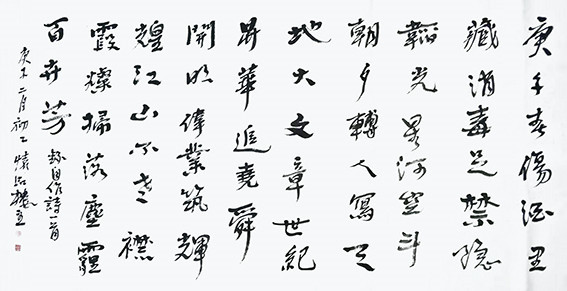 庚子春傷酒里
藏消毒足禁隐
韜光星河空斗
朝夕轉人寫天
地大文章世紀
昇華追堯舜
開明偉業筑輝
煌江山不老襟
霞燦掃落塵霾
百卉芳 錄自作詩一首
庚子二月初二